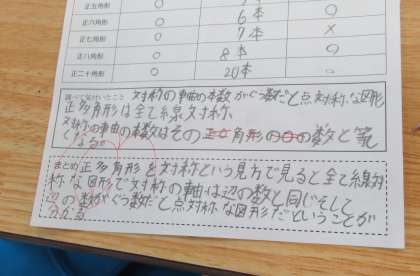 正五角形 ○ 5本
正六角形 ○ 6本 ○
正七角形 ○ 7本 ×
正八角形 ○ 8本 ○
正二十角形 ○ 20本 ○
調べて気付いたこと 対称の軸の本数がぐう数だと点対称な図形
正多角形は全て線対称
対称の軸の本数はその正○角形の○の数と等
しくなる。
まとめ 正多角形を対称という見方で見ると全て線対
称な図形で対称の軸は辺の数と同じそして
辺の数がぐう数だと点対称な図形だということが
分かる